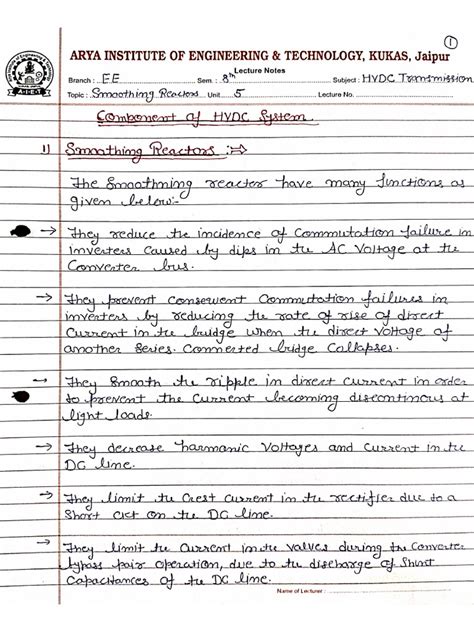 ①
ARYA INSTITUTE OF ENGINEERING & TECHNOLOGY, KUKAS, Jaipur
Lecture Notes
Branch : EE Sem. : 8th Subject : HVDC Transmission
Topic : Smoothing Reactors Unit 5 Lecture No.
A-I-E-T
Component of HVDC System.
1) Smoothing Reactors :⇒
The Smoothning reactor have many functions as
given below:-
→ They reduce the incidence of Commutation failure in
inverters caused by dips in the AC Voltage at the
Converter bus.
→ They prevent consequent Commutation failures in
inverters by reducing the rate of rise of direct
Current in the bridge when the direct voltage of
another Series. Connected bridge Collapses.
→ They Smooth the ripple in direct current in order
to prevent the current becoming discontinous at
light loads.
→ They decrease harmonic Voltages and Current in the
DC line.
→ They limit the Crest Current in the rectifier due to a
Short Ckt on the DC line.
→ They limit the Current in the valves during the Converter
bypass pair operation, due to the discharge of Shunt
Capacitances of the DC line.
Name of Lecturer :